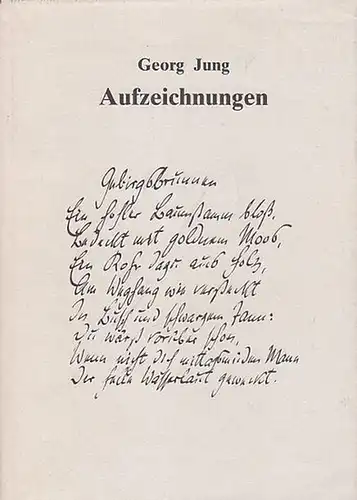 Georg Jung
Aufzeichnungen
Gebirgsbrunnen
Ein hohler Baumstamm bloß,
Bedeckt mit goldnem Moos,
Ein Rohr dazu aus Holz,
Am Weghang wie versteckt
In Busch und schwarzem Tann:
Du wärst vorüber schon,
Wenn nicht dich müden Mann
Der helle Wasserlaut geweckt.